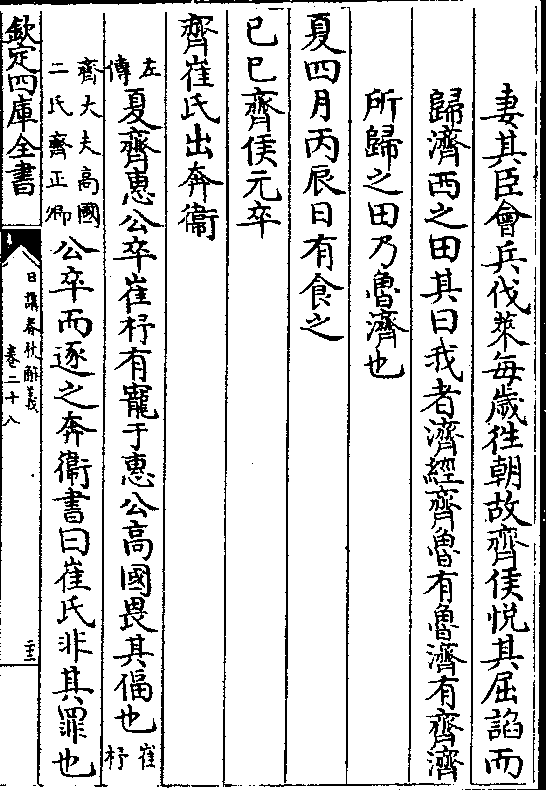 妻其臣會兵伐萊每歳徃朝故齊侯悦其屈諂而
歸濟西之田其曰我者濟經齊魯有魯濟有齊濟
所歸之田乃魯濟也
夏四月丙辰日有食之
己巳齊侯元卒
齊崔氏出奔衞
左傳夏齊惠公卒崔杼有寵于惠公高國畏其偪也崔杼
齊大夫高國二氏齊正卿公卒而逐之奔衞書曰崔氏非其罪也
欽定四庫全書
日講春秋解義
卷二十八